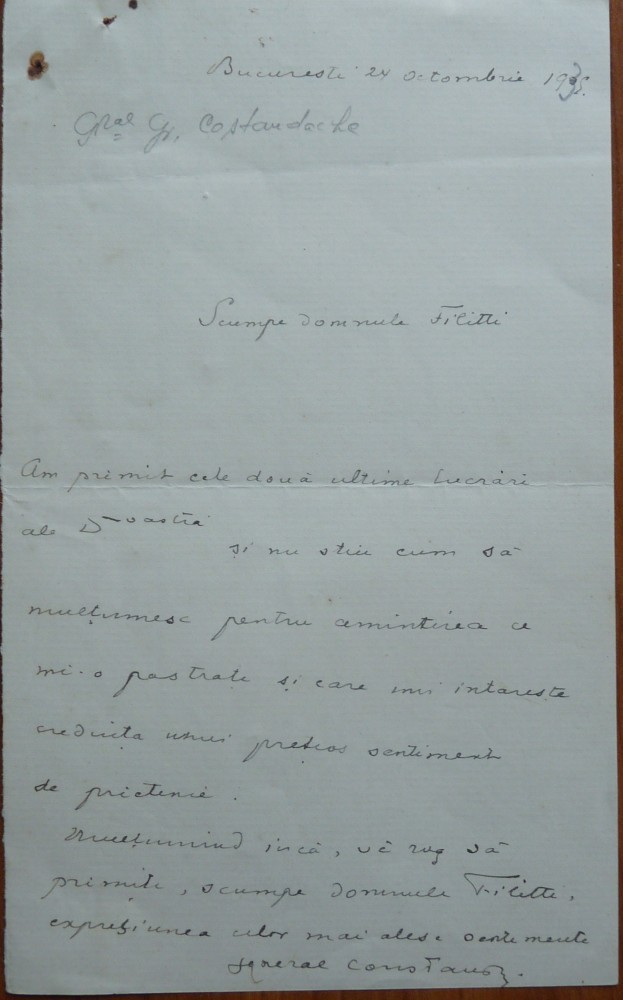 Bucuresti 24 Octombrie
Gral Gr. Costandache
Scumpe domnule Filitti
Am primit cele două ultime lucrări
ale Dvoastră
și nu stiu cum să
mulțumesc pentru amintirea ce
mi-o pastrati și care imi intareste
credința unui prețios sentiment
de prietenie.
Mulțumind incă, vă rog să
primiti, scumpe domnule Filitti,
expresiunea celor mai alese sentimente
general